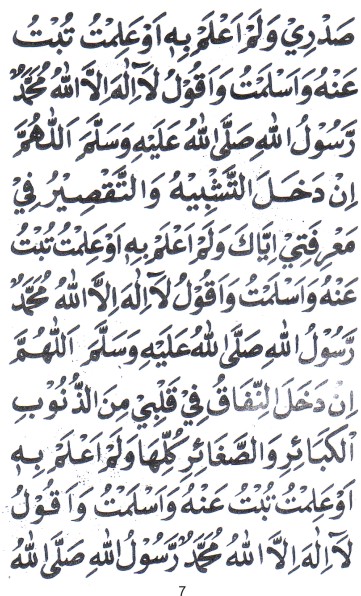 صَدْرِيْ وَلَمْ اَعْلَمْ بِهٖ اَوْ عَلِمْتُ تُبْتُ
عَنْهُ وَاَسْلَمْتُ وَاَقُوْلُ لَآ اِلٰهَ اِلَّا اللهُ مُحَمَّدٌ
رَّسُوْلُ اللهِ صَلَّى اللهُ عَلَيْهِ وَسَلَّمَ اَللّٰهُمَّ
اِنْ دَخَلَ التَّشْبِيْهُ وَالتَّقْصِيْرُ فِيْ
مَعْرِفَتِيْ اِيَّاكَ وَلَمْ اَعْلَمْ بِهٖ اَوْ عَلِمْتُ تُبْتُ
عَنْهُ وَاَسْلَمْتُ وَاَقُوْلُ لَآ اِلٰهَ اِلَّا اللهُ مُحَمَّدٌ
رَّسُوْلُ اللهِ صَلَّى اللهُ عَلَيْهِ وَسَلَّمَ اَللّٰهُمَّ
اِنْ دَخَلَ النِّفَاقُ فِيْ قَلْبِيْ مِنَ الذُّنُوْبِ
الْكَبَائِرِ وَالصَّغَائِرِ كُلِّهَا وَلَمْ اَعْلَمْ بِهٖ
اَوْ عَلِمْتُ تُبْتُ عَنْهُ وَاَسْلَمْتُ وَاَقُوْلُ
لَآ اِلٰهَ اِلَّا اللهُ مُحَمَّدٌ رَّسُوْلُ اللهِ صَلَّى اللهُ
7